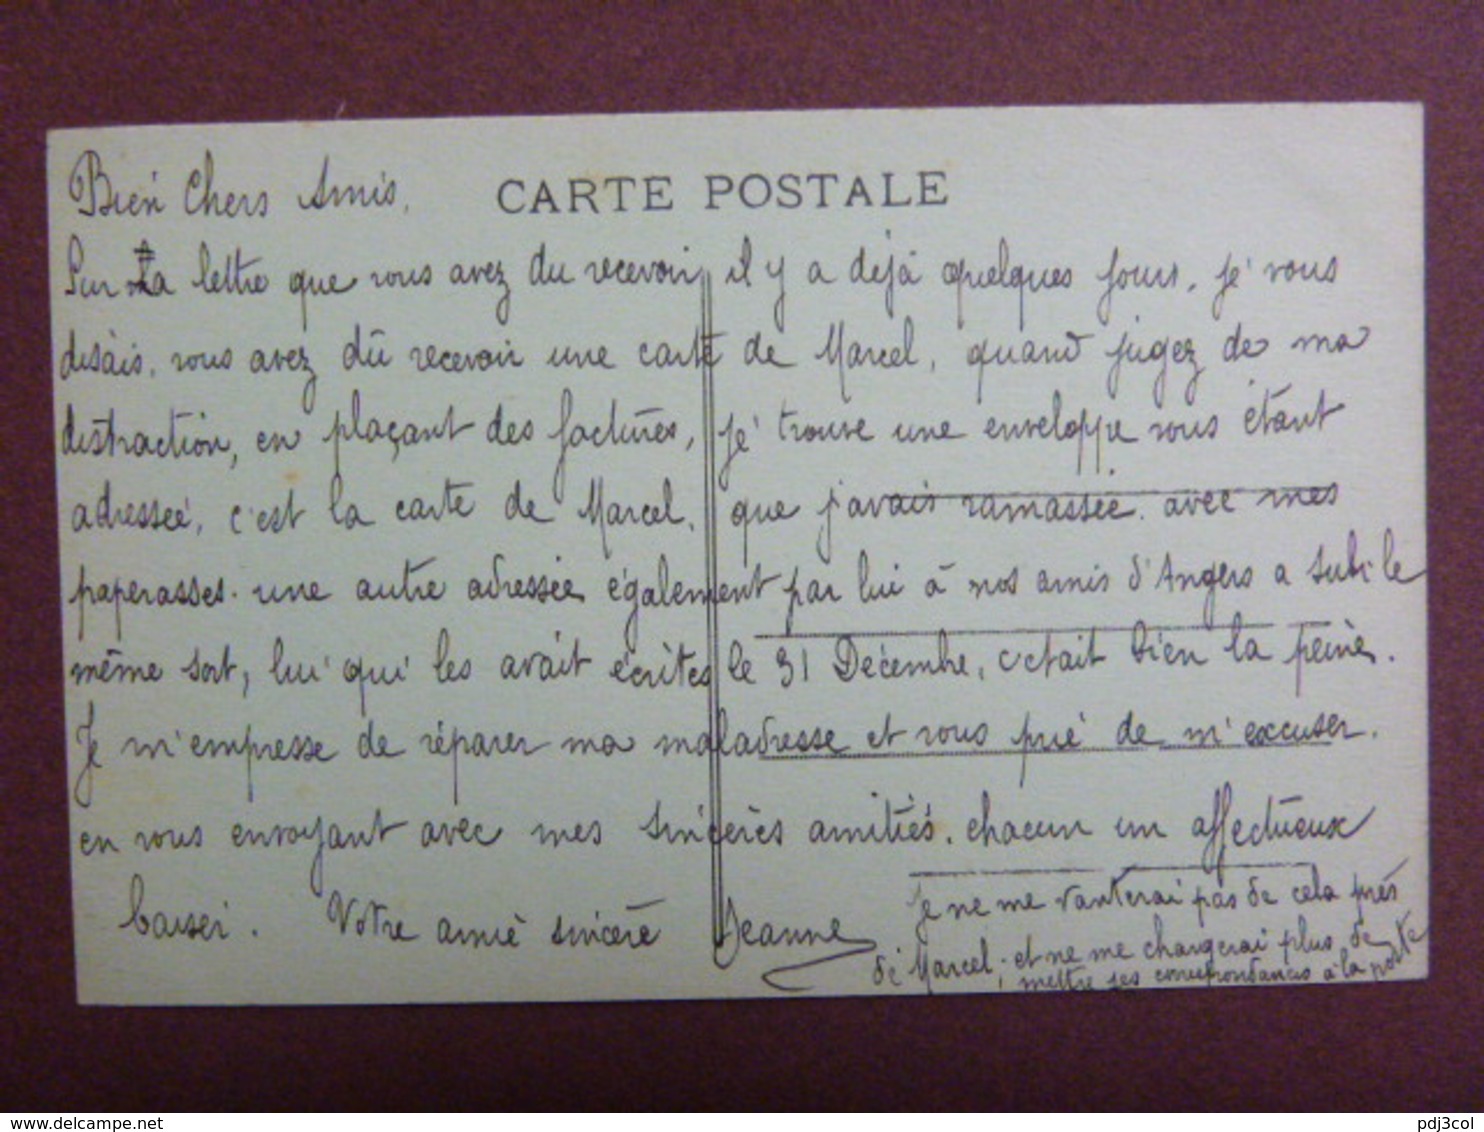 Bien Chers Amis.
CARTE POSTALE
Sur la lettre que vous avez du recevoir il y a déjà quelques jours, je vous
disais, vous avez dû recevoir une carte de Marcel, quand jugez de ma
distraction, en plaçant des factures, je trouve une enveloppe vous étant
adressée, c'est la carte de Marcel, que j'avais ramassée avec mes
paperasses. une autre adressée également par lui à nos amis d'Angers a subi le
même sort, lui qui les avait écrites le 31 Décembre, c'etait bien la peine.
Je m'empresse de réparer ma maladresse et vous prie de m'excuser.
en vous envoyant avec mes sincères amitiés. chacun un affectueux
baiser. Votre amie sincère Jeanne
Je ne me vanterai pas de cela près
de Marcel, et ne me chargerai plus de
mettre ses correspondances à la poste
www.delcampe.net
pdj3col